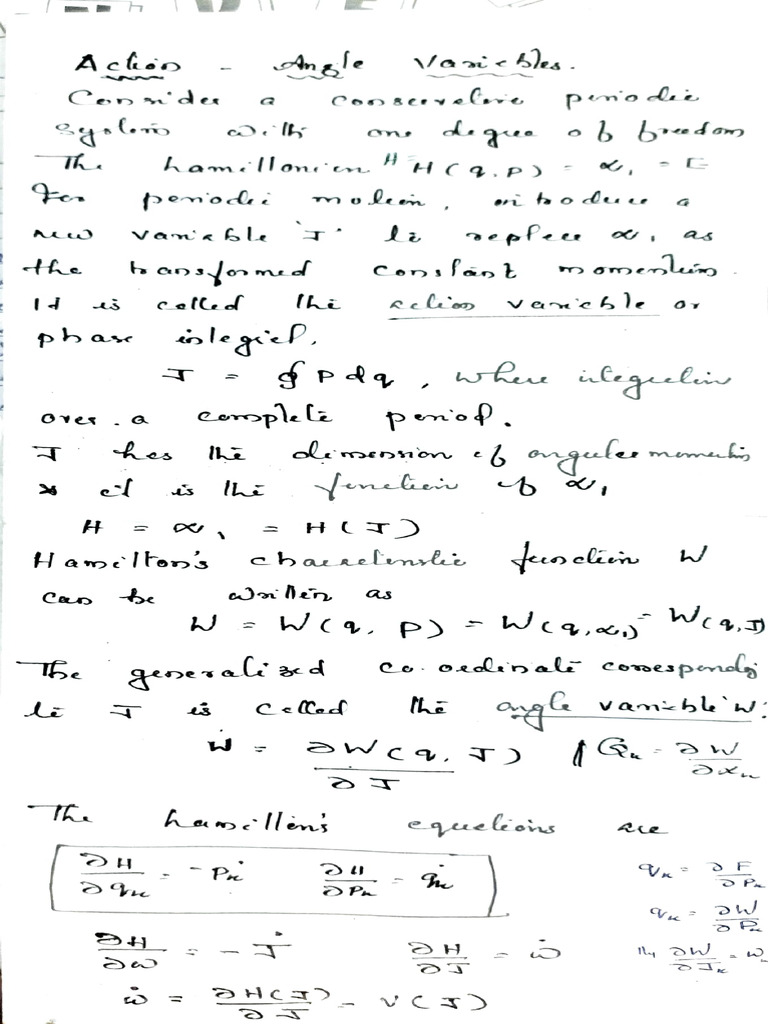 Action - Angle Variables.
Consider a conservative periodic
system with one degree of freedom
The hamiltonian H H(q, p) = α₁ = E
For periodic motion, introduce a
new variable 'J' to replace α₁ as
the transformed constant momentum.
It is called the action variable or
phase integral.
J = ∮ P dq, where integration
over a complete period.
J has the dimension of angular momentum
& it is the function of α₁
H = α₁ = H(J)
Hamilton's characteristic function W
can be written as
W = W(q, P) = W(q, α₁) = W(q, J)
The generalized co-ordinate corresponding
to J is called the angle variable 'w':
w = ∂W(q, J) / ∂J Qₖ = ∂W / ∂αₖ
The hamilton's equations are
∂H/∂qₖ = -ṗₖ ∂H/∂Pₖ = q̇ₖ qₖ = ∂F/∂Pₖ
qₖ = ∂W/∂Pₖ
∂H/∂w = - J̇ ∂H/∂J = ẇ lly ∂W/∂Jₖ = wₖ
ẇ = ∂H(J)/∂J = ν(J)